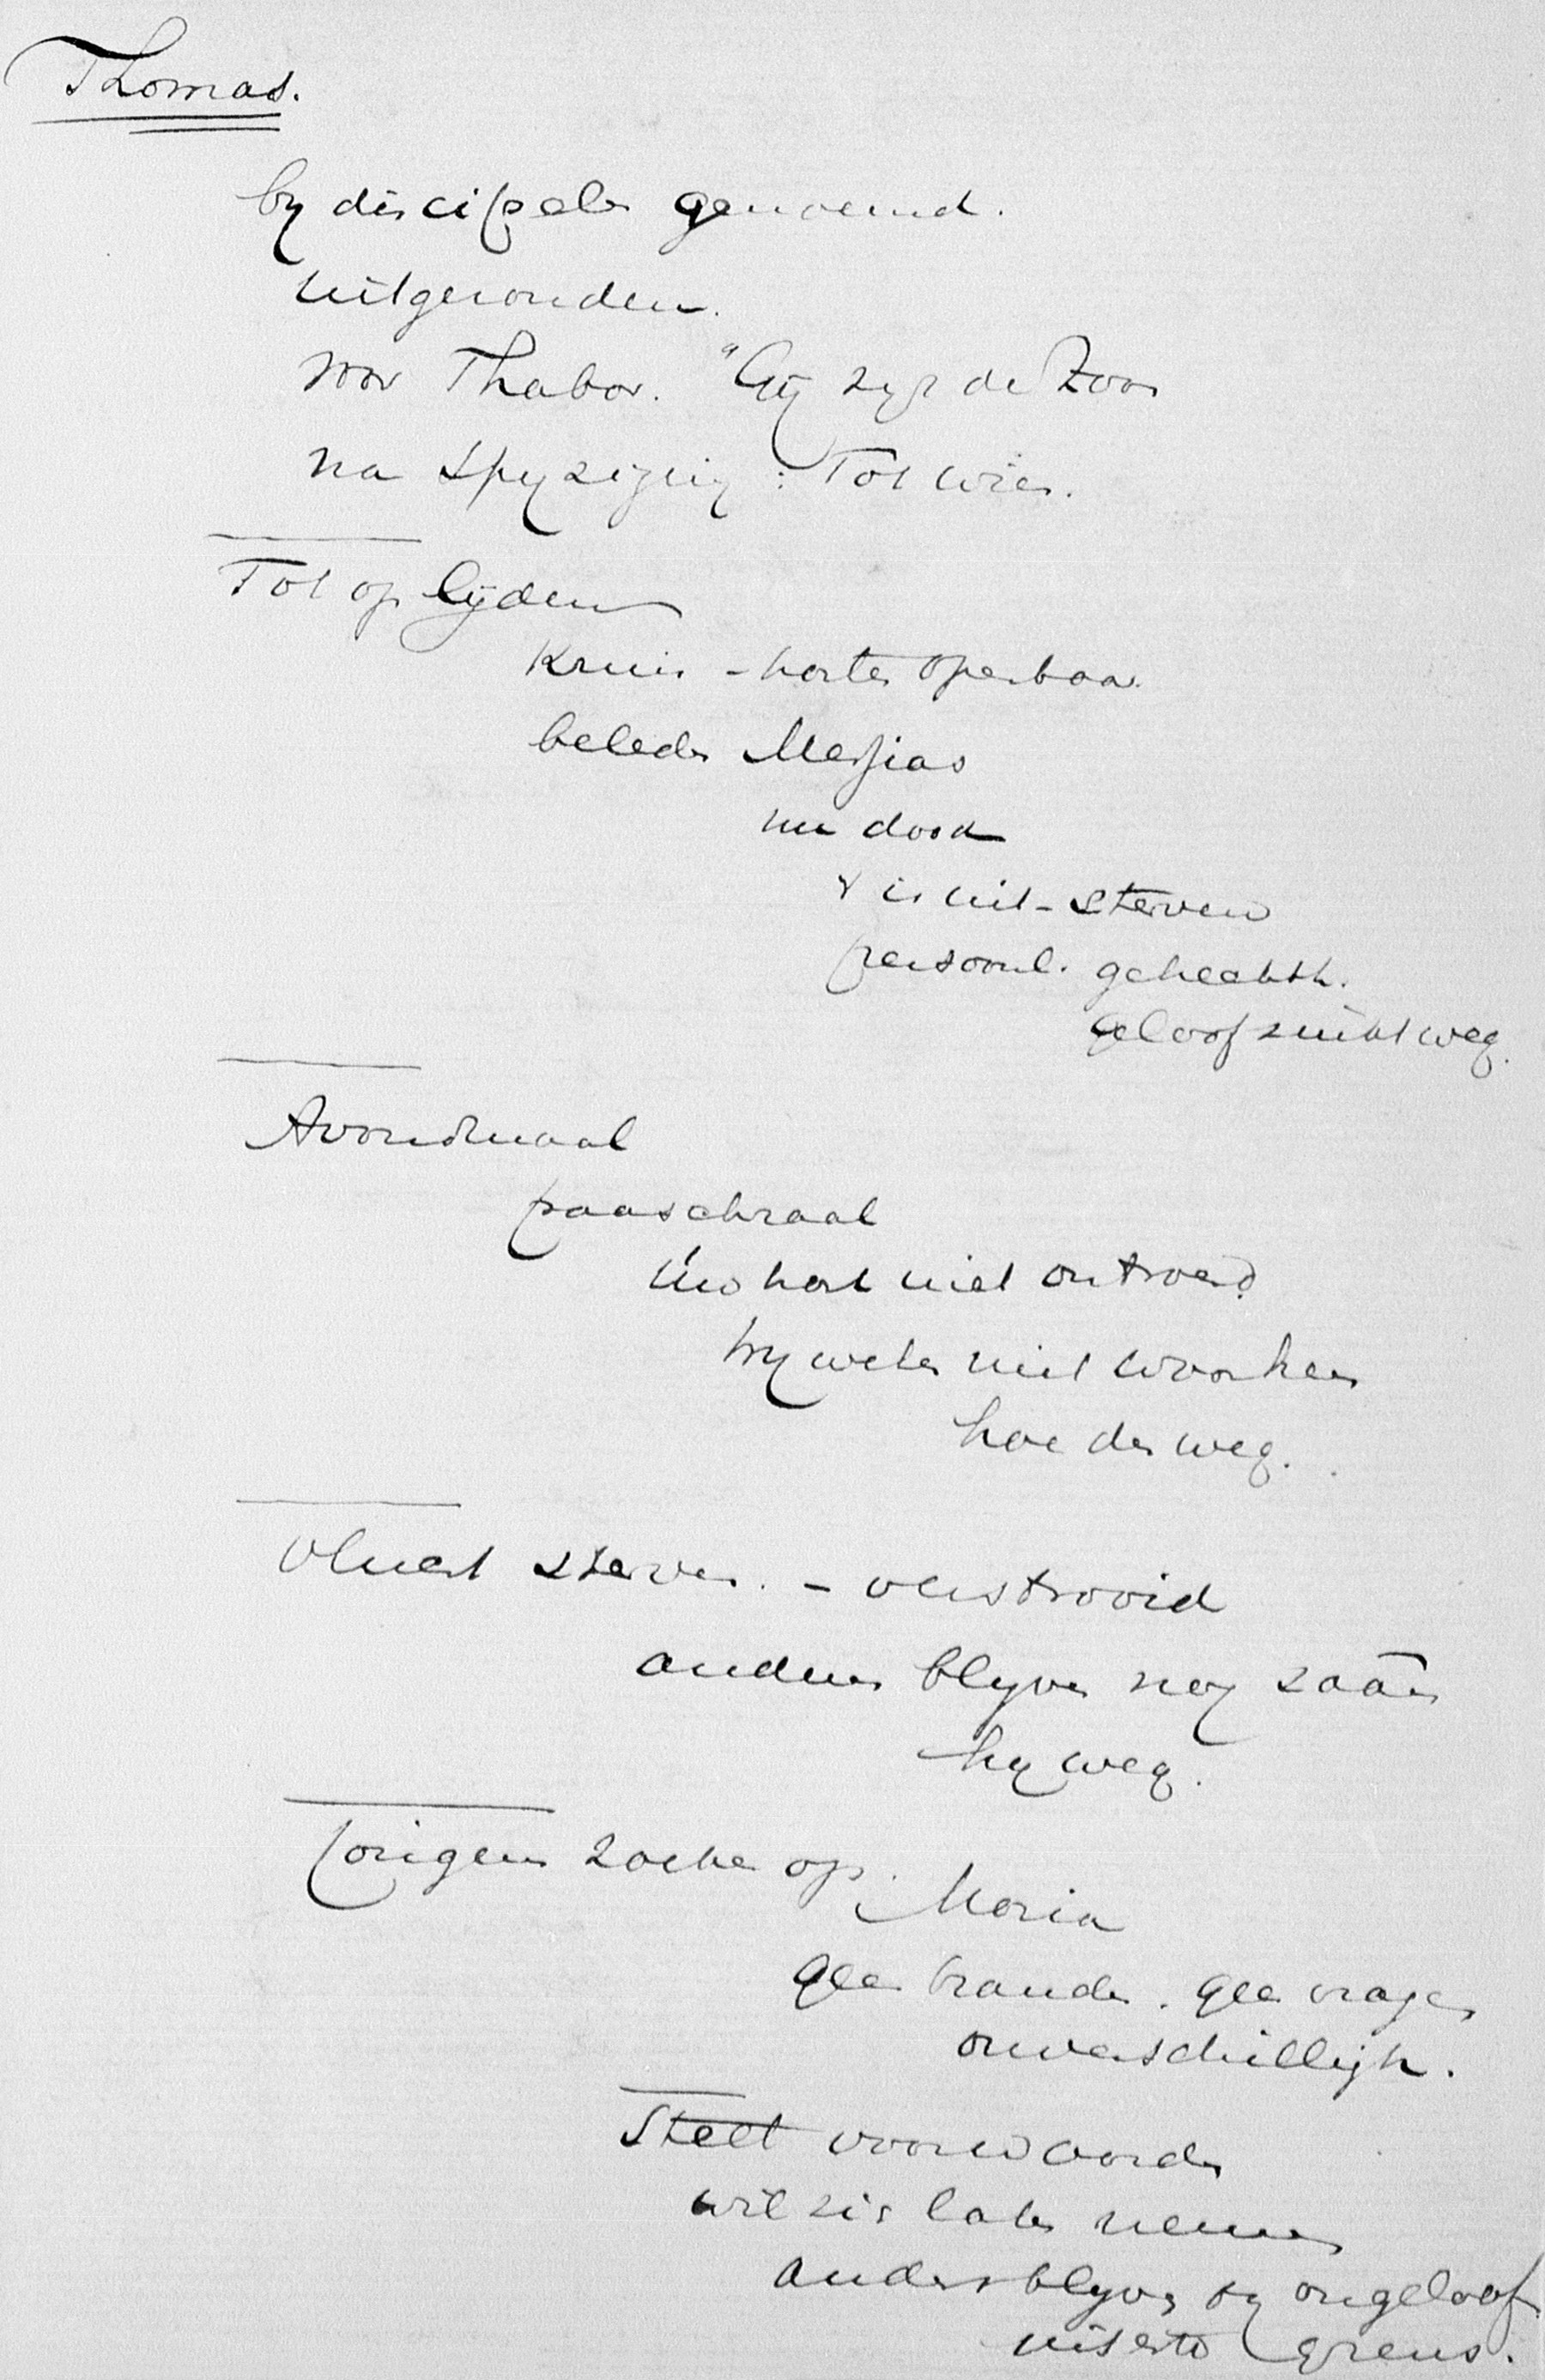 Thomas.
by discipelen genoemd.
uitgezonden.
voor Thabor. "Gij zijt de Zoon
na spyziging : Tot wien.
Tot op lijden
Kruis - harten openbaar.
beleden Messias
nu dood
& is uit - sterven
persoonl. gehechth.
geloof zinkt weg.
Avondmaal
paaschmaal
Uw hart niet ontroerd
wy weten niet waarheen
hoe den weg.
vlucht sterven. - verstrooid
anderen blyven nog zaam
hy weg.
vorigen zoeken op. Maria
geen vrouwen. geen vragen
onverschilligh.
Stelt voorwaarden
wil zien laten nemen
anders blyven by ongeloof
uiterste grens.